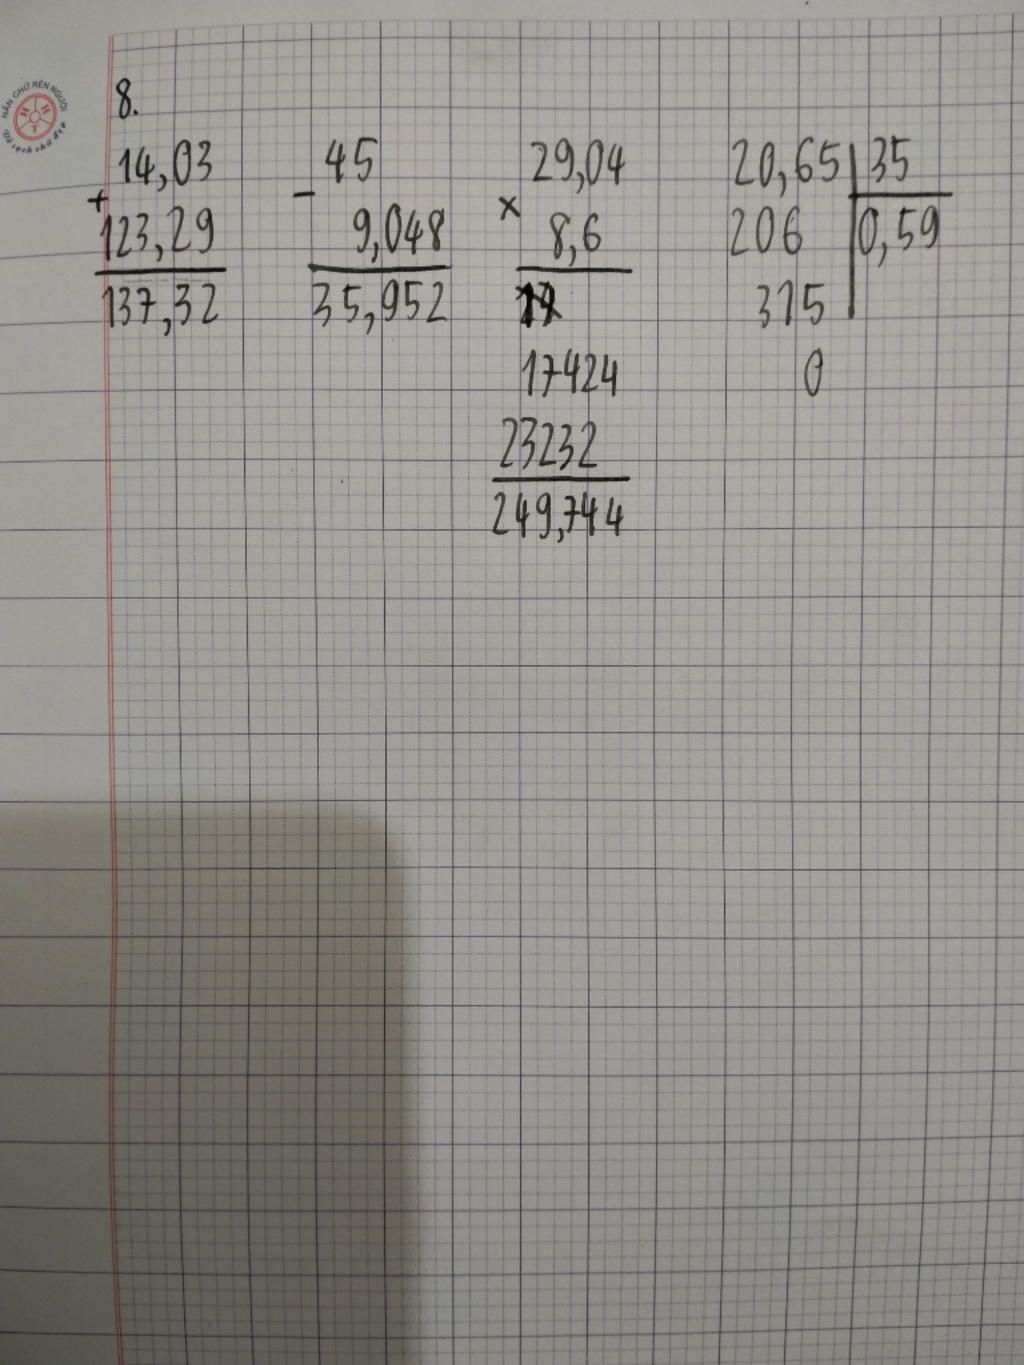 NẮN CHỮ RÈN NGƯỜI
H H T
8.
14,03
+
123,29
137,32
45
-
9,048
35,952
29,04
x
8,6
17424
23232
249,744
20,65 35
206 0,59
315
0